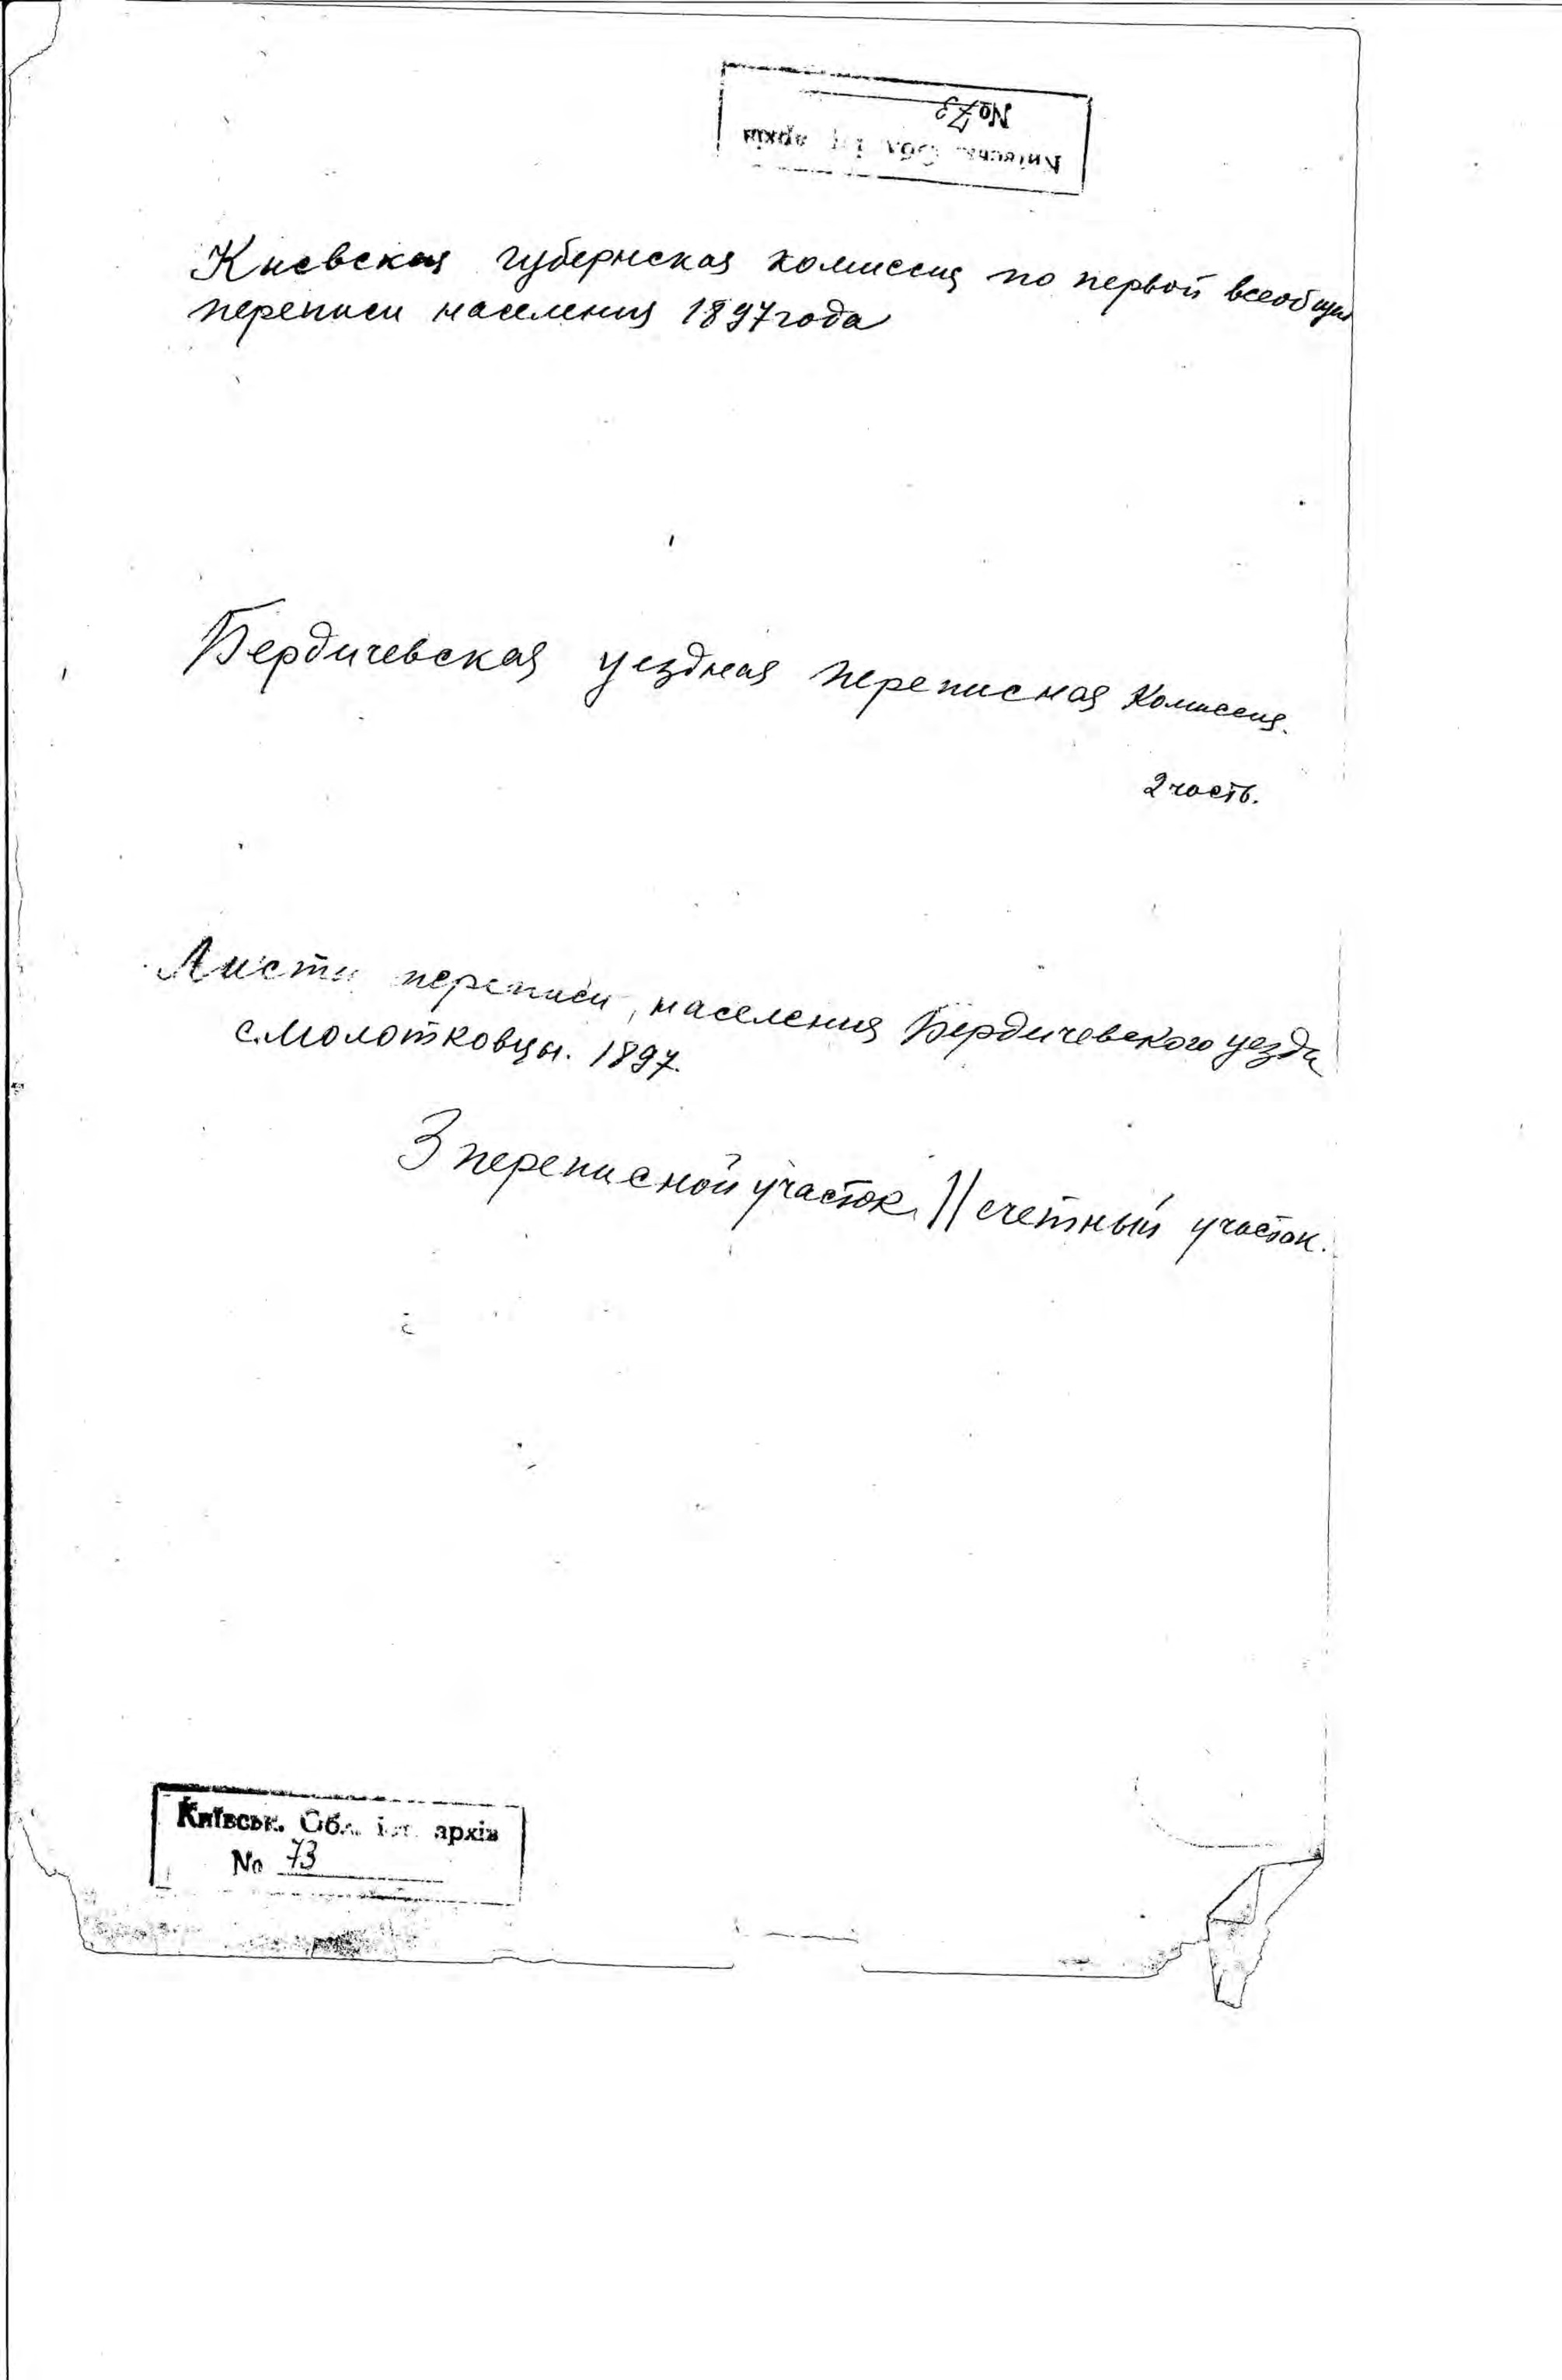 Київськ. Обл. іст. архів
№ 73
Киевская губернская комиссия по первой всеобщей
переписи населения 1897 года
Бердичевская уездная переписная комиссия.
2 часть.
Листы переписи, населения Бердичевского уезда
с. Молотковцы. 1897.
3 переписной участок. 11 счетный участок.
Київськ. Обл. іст. архів
№ 73